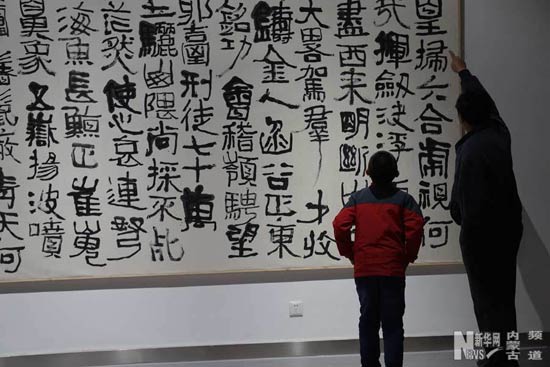 皇掃六合虎視何
哉揮劍決浮
盡西來明斷
大畧駕羣才收
鑄金人函谷正東
銘功會稽嶺騁望
耶臺刑徒七十萬
土驪山隈尚採不死
茫然使心哀連弩
海魚長鯨正崔嵬
鼻象五嶽揚波噴
鬣蔽青天何
新华网
NEWS
内蒙古
频道